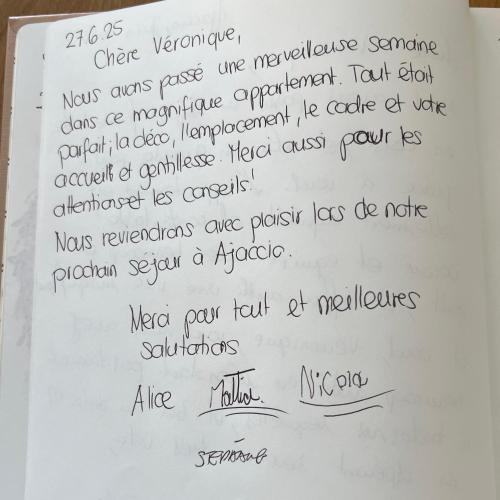 27.6.25
Chère Véronique,
Nous avons passé une merveilleuse semaine
dans ce magnifique appartement. Tout était
parfait; la déco, l'emplacement, le cadre et votre
accueil et gentillesse. Merci aussi pour les
attentions et les conseils!
Nous reviendrons avec plaisir lors de notre
prochain séjour à Ajaccio.
Merci pour tout et meilleures
salutations
Alice Mattia Nicola
STEPHANE